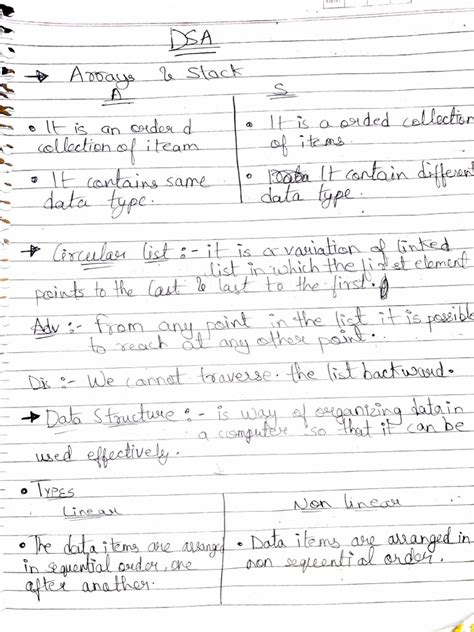 DSA
→ Arrays & Stack
A
S
• It is an order d
collection of iteam
• It contains same
data type.
• It is a orded collection
of items
• It contain different
data type.
→ Circular list :- it is a variation of linked
list in which the first element
points to the last & last to the first.
Adv :- from any point in the list it is possible
to reach at any other point.
Dis :- We cannot traverse the list backward.
→ Data Structure :- is way of organizing data in
a computer so that it can be
used effectively.
• TYPES
Linear
Non linear
• The data items are arranged
in sequential order, one
after another.
• Data items are arranged in
non seqeential order.